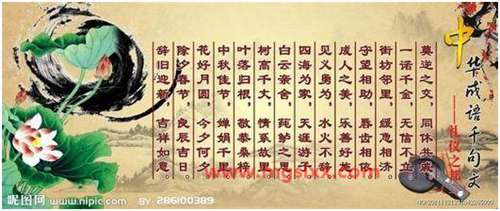 中华成语千句文
——礼仪之邦
莫逆之交，同休共戚。
一诺千金，无信不立。
街坊邻里，缓急相济。
守望相助，唇齿相依。
成人之美，乐善好施。
见义勇为，水火不辞。
四海为家，天涯游子。
白云亲舍，莼鲈之思。
树高千丈，情系故里。
叶落归根，敬恭桑梓。
中秋佳节，婵娟千里。
花好月圆，今夕何夕。
除夕春节，良辰吉日。
辞旧迎新，吉祥如意。
昵图网
www.nipic.com
BY: 286100389